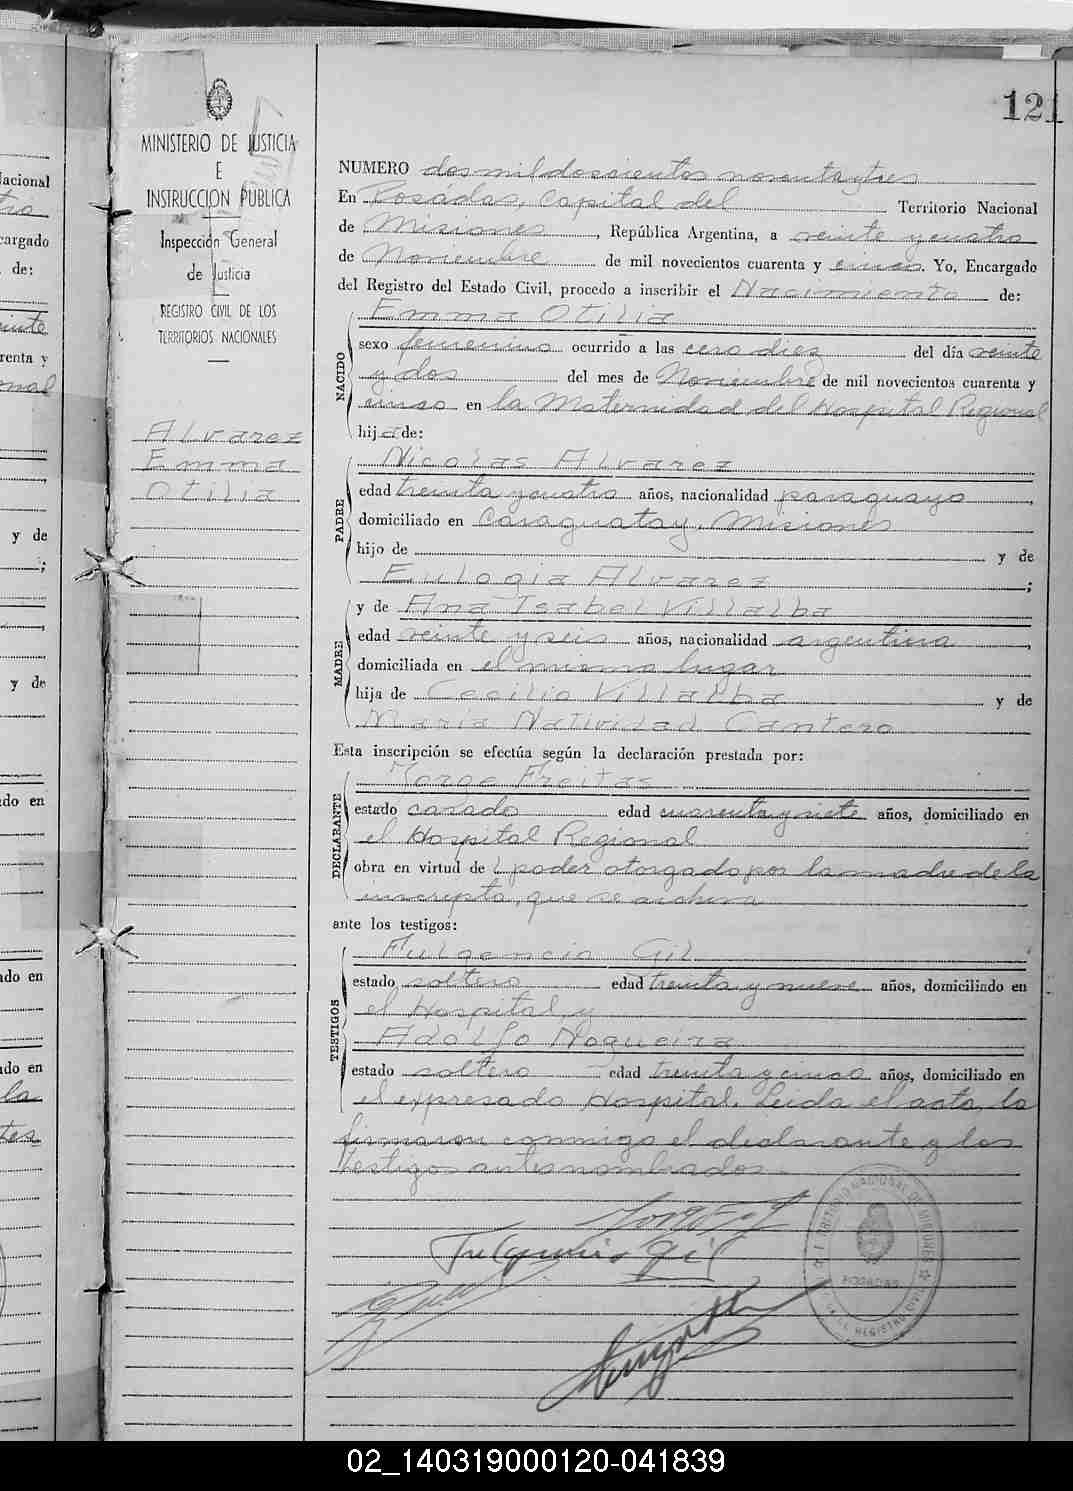 121
MINISTERIO DE JUSTICIA
E
INSTRUCCION PUBLICA
Inspección General
de Justicia
REGISTRO CIVIL DE LOS
TERRITORIOS NACIONALES
Alvarez
Emma
Otilia
NUMERO dos mil doscientos noventa y tres
En Posadas, Capital del Territorio Nacional
de Misiones, República Argentina, a veinte y cuatro
de Noviembre de mil novecientos cuarenta y cinco. Yo, Encargado
del Registro del Estado Civil, procedo a inscribir el Nacimiento de:
NACIDO
Emma Otilia
sexo femenino ocurrido a las cero diez del día veinte
y dos del mes de Noviembre de mil novecientos cuarenta y
cinco en la Maternidad del Hospital Regional
hija de:
PADRE
Nicolas Alvarez
edad treinta y cuatro años, nacionalidad paraguayo,
domiciliado en Caraguatay, Misiones
hijo de y de
Eulogia Alvarez;
MADRE
y de Ana Isabel Villalba
edad veinte y seis años, nacionalidad argentina,
domiciliada en el mismo lugar
hija de Cecilio Villalba y de
Maria Natividad Cantero
Esta inscripción se efectúa según la declaración prestada por:
DECLARANTE
Jorge Freitas
estado casado edad cuarenta y siete años, domiciliado en
el Hospital Regional
obra en virtud de poder otorgado por la madre de la
inscripta, que se archiva
ante los testigos:
TESTIGOS
Fulgencio Gil
estado soltero edad treinta y nueve años, domiciliado en
el Hospital, y
Adolfo Nogueira
estado soltero edad treinta y cinco años, domiciliado en
el expresado Hospital. Leida el acta, la
firmaron conmigo el declarante y los
testigos antes nombrados.
Fulgencio Gil
POSADAS
02_140319000120-041839